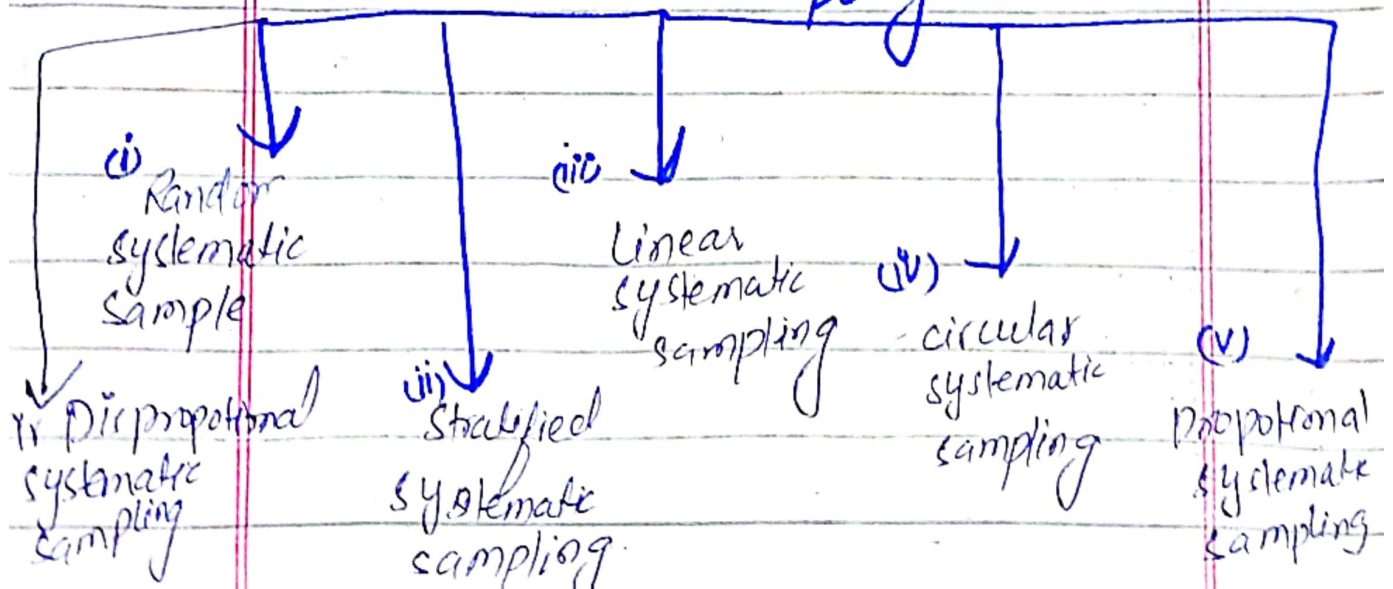 (i)
Random
systematic
sample
(ii)
Stratified
systematic
sampling.
(iii)
Linear
systematic
sampling
(iv)
circular
systematic
sampling
(v)
propotional
systematic
sampling
Dispropotional
systematic
sampling